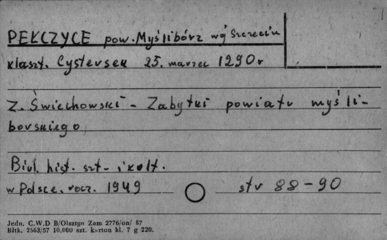 PEŁCZYCE pow. Myślibórz woj Szczecin
klaszt. Cystersek 25. marzec 1290 r
Z. Świechowski - Zabytki powiatu myśli-
borskiego
Biul. hist. szt. i kult.
w Polsce, rocz. 1949 str 88-90
Jedn. C.W.D B/Olsztyn Zam 2776/on/ 67
Bltk. 7563/57 10.000 szt. karton kl. 7 g 220.